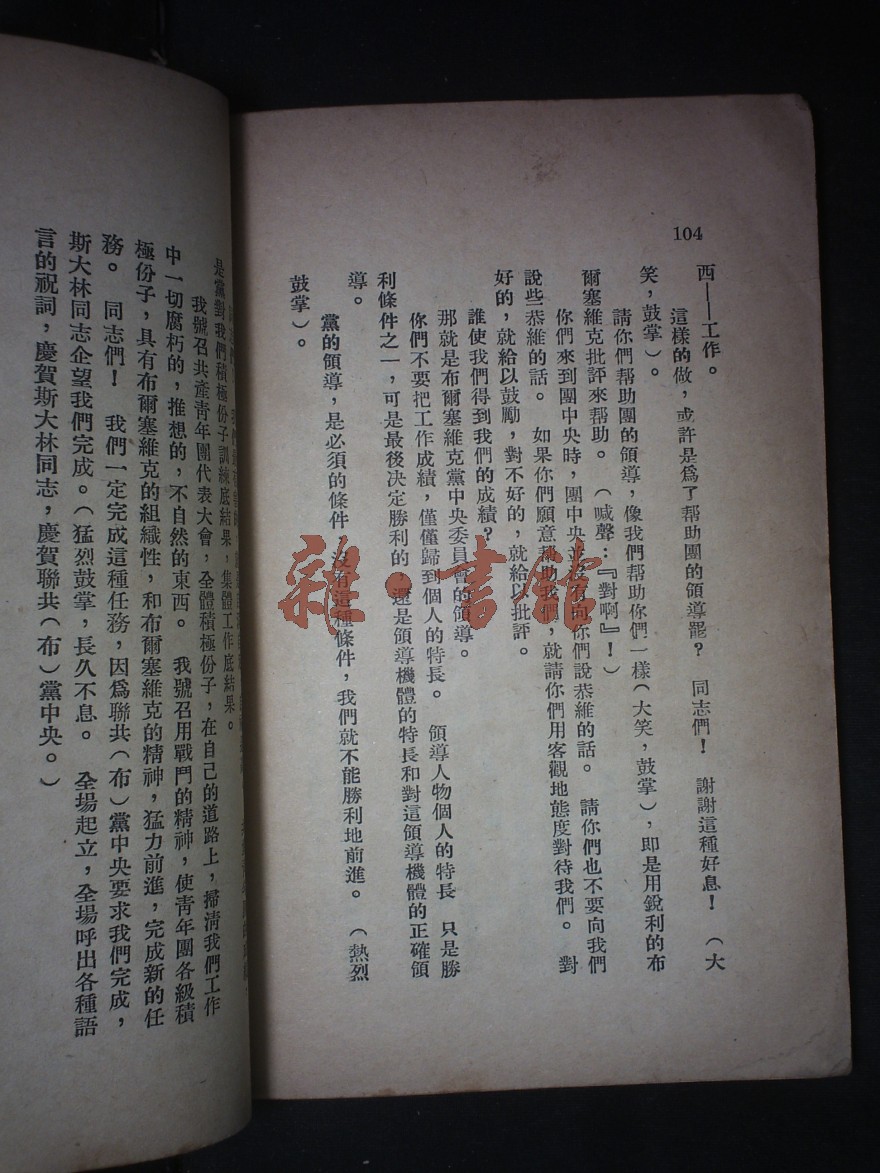 104
西——工作。
這樣的做，或許是爲了帮助團的領導罷？　同志們！　謝謝這種好息！　（大
笑，鼓掌）。
請你們帮助團的領導，像我們帮助你們一樣（大笑，鼓掌），即是用銳利的布
爾塞維克批評來帮助。　（喊聲：『對啊』！）
你們來到團中央時，團中央並沒有向你們說恭維的話。　請你們也不要向我們
說些恭維的話。　如果你們願意帮助我們，就請你們用客觀地態度對待我們。　對
好的，就給以鼓勵，對不好的，就給以批評。
誰使我們得到我們的成績？
那就是布爾塞維克黨中央委員會的領導。
你們不要把工作成績，僅僅歸到個人的特長。　領導人物個人的特長　只是勝
利條件之一，可是最後決定勝利的，還是領導機體的特長和對這領導機體的正確領
導。
黨的領導，是必須的條件　沒有這種條件，我們就不能勝利地前進。　（熱烈
鼓掌）。
是黨對我們積極份子訓練底結果，集體工作底結果。
我號召共產青年團代表大會，全體積極份子，在自己的道路上，掃清我們工作
中一切腐朽的，推想的，不自然的東西。　我號召用戰鬥的精神，使青年團各級積
極份子，具有布爾塞維克的組織性，和布爾塞維克的精神，猛力前進，完成新的任
務。　同志們！　我們一定完成這種任務，因爲聯共（布）黨中央要求我們完成，
斯大林同志企望我們完成。（猛烈鼓掌，長久不息。　全場起立，全場呼出各種語
言的祝詞，慶賀斯大林同志，慶賀聯共（布）黨中央。）
雜·書館